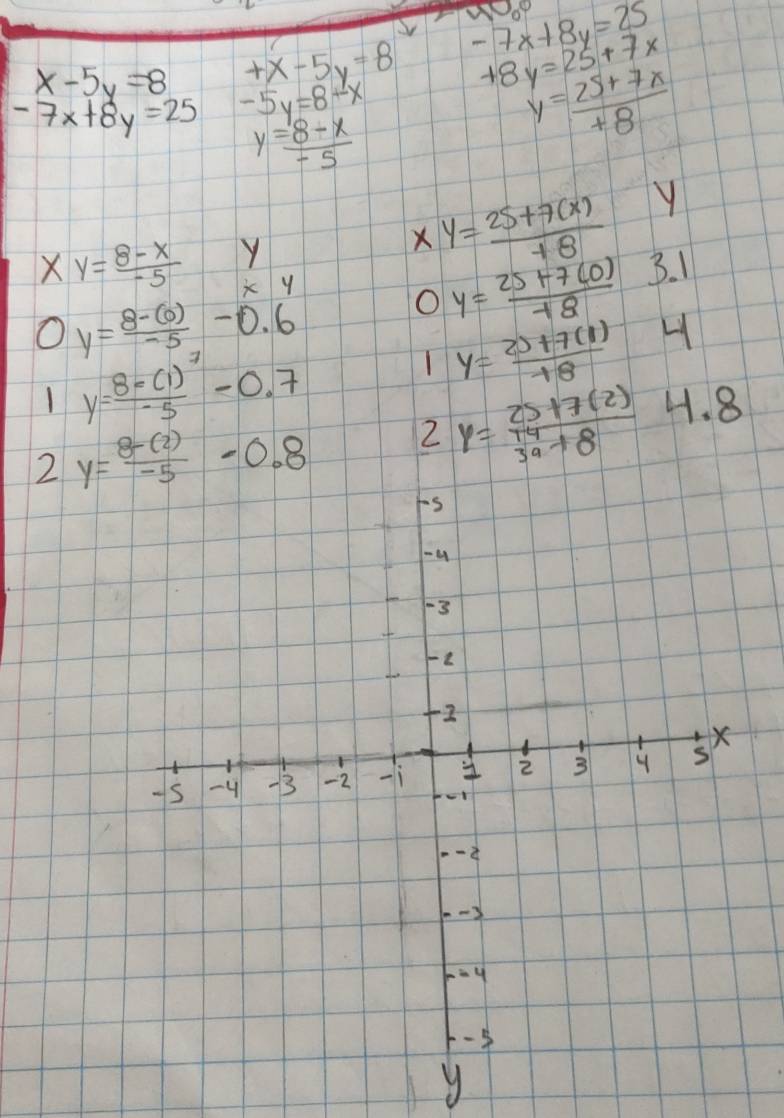 x-5y=8
-7x+8y=25
+x-5y=8
-5y=8-x
y=8-x
-5
-7x+8y=25
+8y=25+7x
y=25+7x
+8
x y=8-x y
-5
x y
0 y=8-(0) -0.6
-5
1 y=8-(1) -0.7
-5
7
2 y=8-(2) -0.8
-5
x y=25+7(x) y
+8
0 y=25+7(0) 3.1
+8
1 y=25+7(1) 4
+8
2 y=25+7(2) 4.8
+8
14
39
-5
-4
-3
-2
-1
-5 -4 -3 -2 -1 1 2 3 4 5 x
-1
-2
-3
-4
-5
y